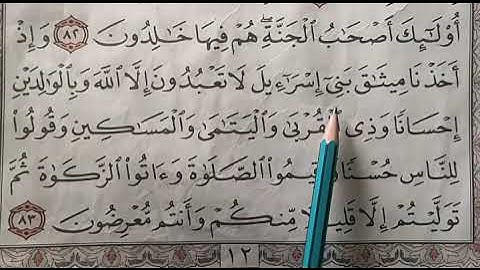 أُوْلَٰٓئِكَ أَصۡحَٰبُ ٱلۡجَنَّةِۖ هُمۡ فِيهَا خَٰلِدُونَ ٨٢ وَإِذۡ
أَخَذۡنَا مِيثَٰقَ بَنِيٓ إِسۡرَٰٓءِيلَ لَا تَعۡبُدُونَ إِلَّا ٱللَّهَ وَبِٱلۡوَٰلِدَيۡنِ
إِحۡسَانٗا وَذِي ٱلۡقُرۡبَىٰ وَٱلۡيَتَٰمَىٰ وَٱلۡمَسَٰكِينِ وَقُولُواْ
لِلنَّاسِ حُسۡنٗا وَأَقِيمُواْ ٱلصَّلَوٰةَ وَءَاتُواْ ٱلزَّكَوٰةَ ثُمَّ
تَوَلَّيۡتُمۡ إِلَّا قَلِيلٗا مِّنكُمۡ وَأَنتُم مُّعۡرِضُونَ ٨٣
١٢